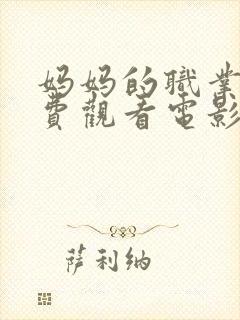 妈妈的職業
費觀看電影
萨利纳